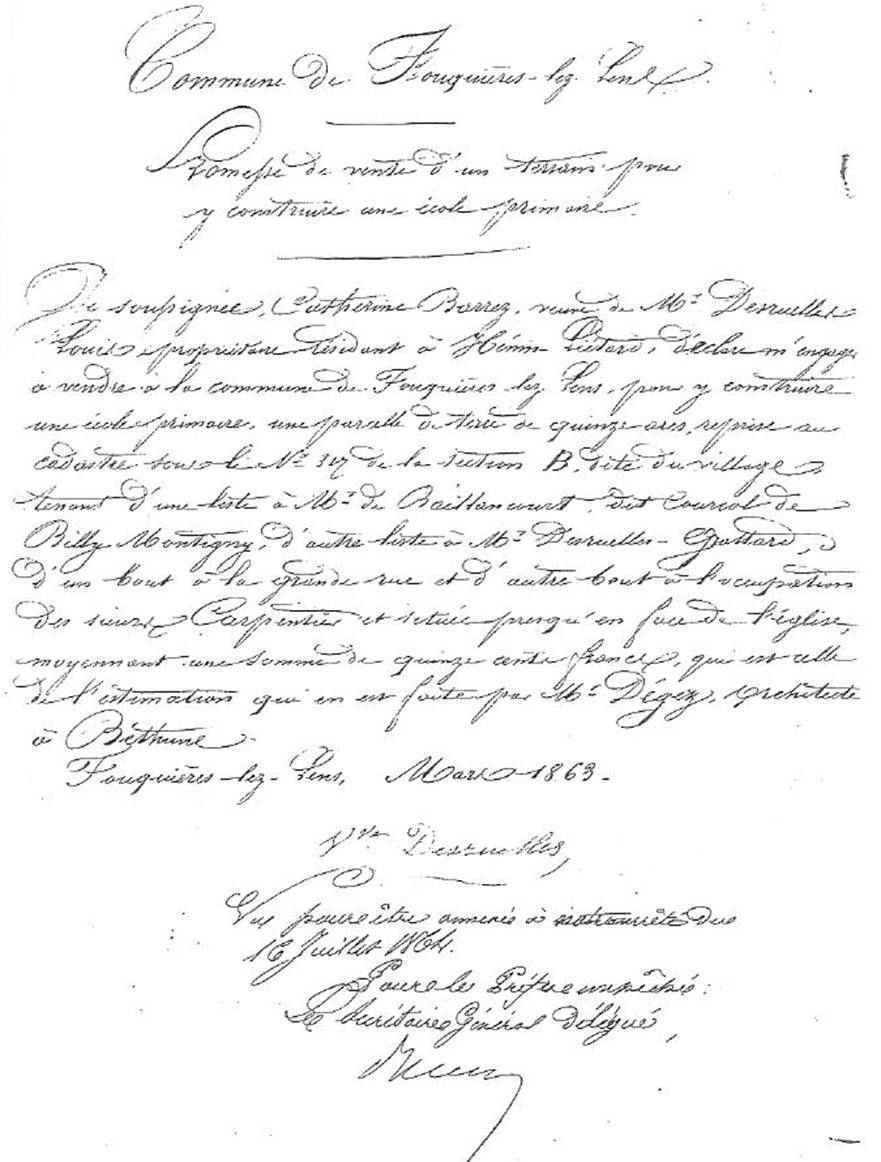 Commune de Fouquières-lez-Lens
Promesse de vente d'un terrain pour
y construire une école primaire.
Je soussignée, Catherine Barrez, veuve de Mr Desruelles
Louis, propriétaire résidant à Hénin-Liétard, déclare m'engager
à vendre à la commune de Fouquières lez Lens, pour y construire
une école primaire, une parcelle de terre de quinze ares, reprise au
cadastre sous le No 317 de la section B, dite du village,
tenant d'une liste à Mr de Baillancourt, dit Courcol de
Billy Montigny, d'autre liste à Mr Desruelles-Gottard,
d'un bout à la grande rue et d'autre bout à l'occupation
des sieurs Carpentier et située presqu'en face de l'église,
moyennant une somme de quinze cents francs, qui est celle
de l'estimation qui en est faite par Mr Dégez, architecte
à Béthune.
Fouquières-lez-Lens, Mars 1863.
Vve Desruelles,
Vu pour être annexé à notre arrêté du
16 Juillet 1864.
Pour le Préfet empêché:
Le Secrétaire Général délégué,